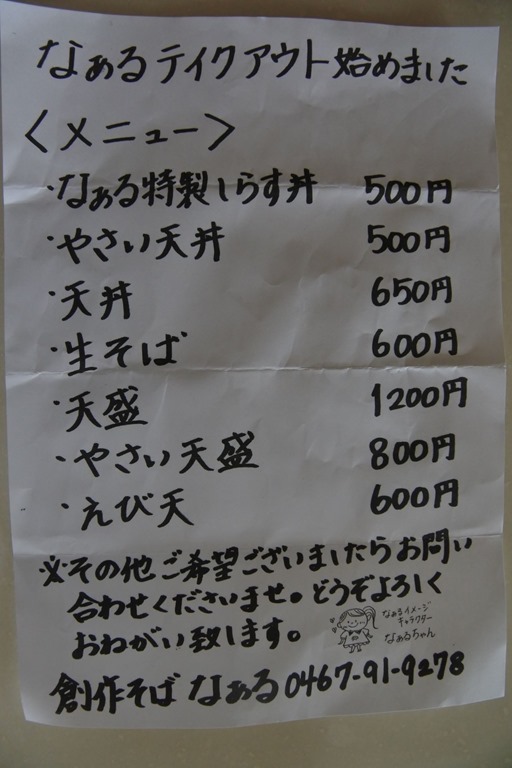 なぁるテイクアウト始めました
〈メニュー〉
・なぁる特製しらす丼 500円
・やさい天丼 500円
・天丼 650円
・生そば 600円
・天盛 1200円
・やさい天盛 800円
・えび天 600円
※その他ご希望ございましたらお問い
合わせくださいませ。どうぞよろしく
おねがい致します。
なぁるイメージ
キャラクター
なぁるちゃん
創作そば なぁる 0467-91-9278